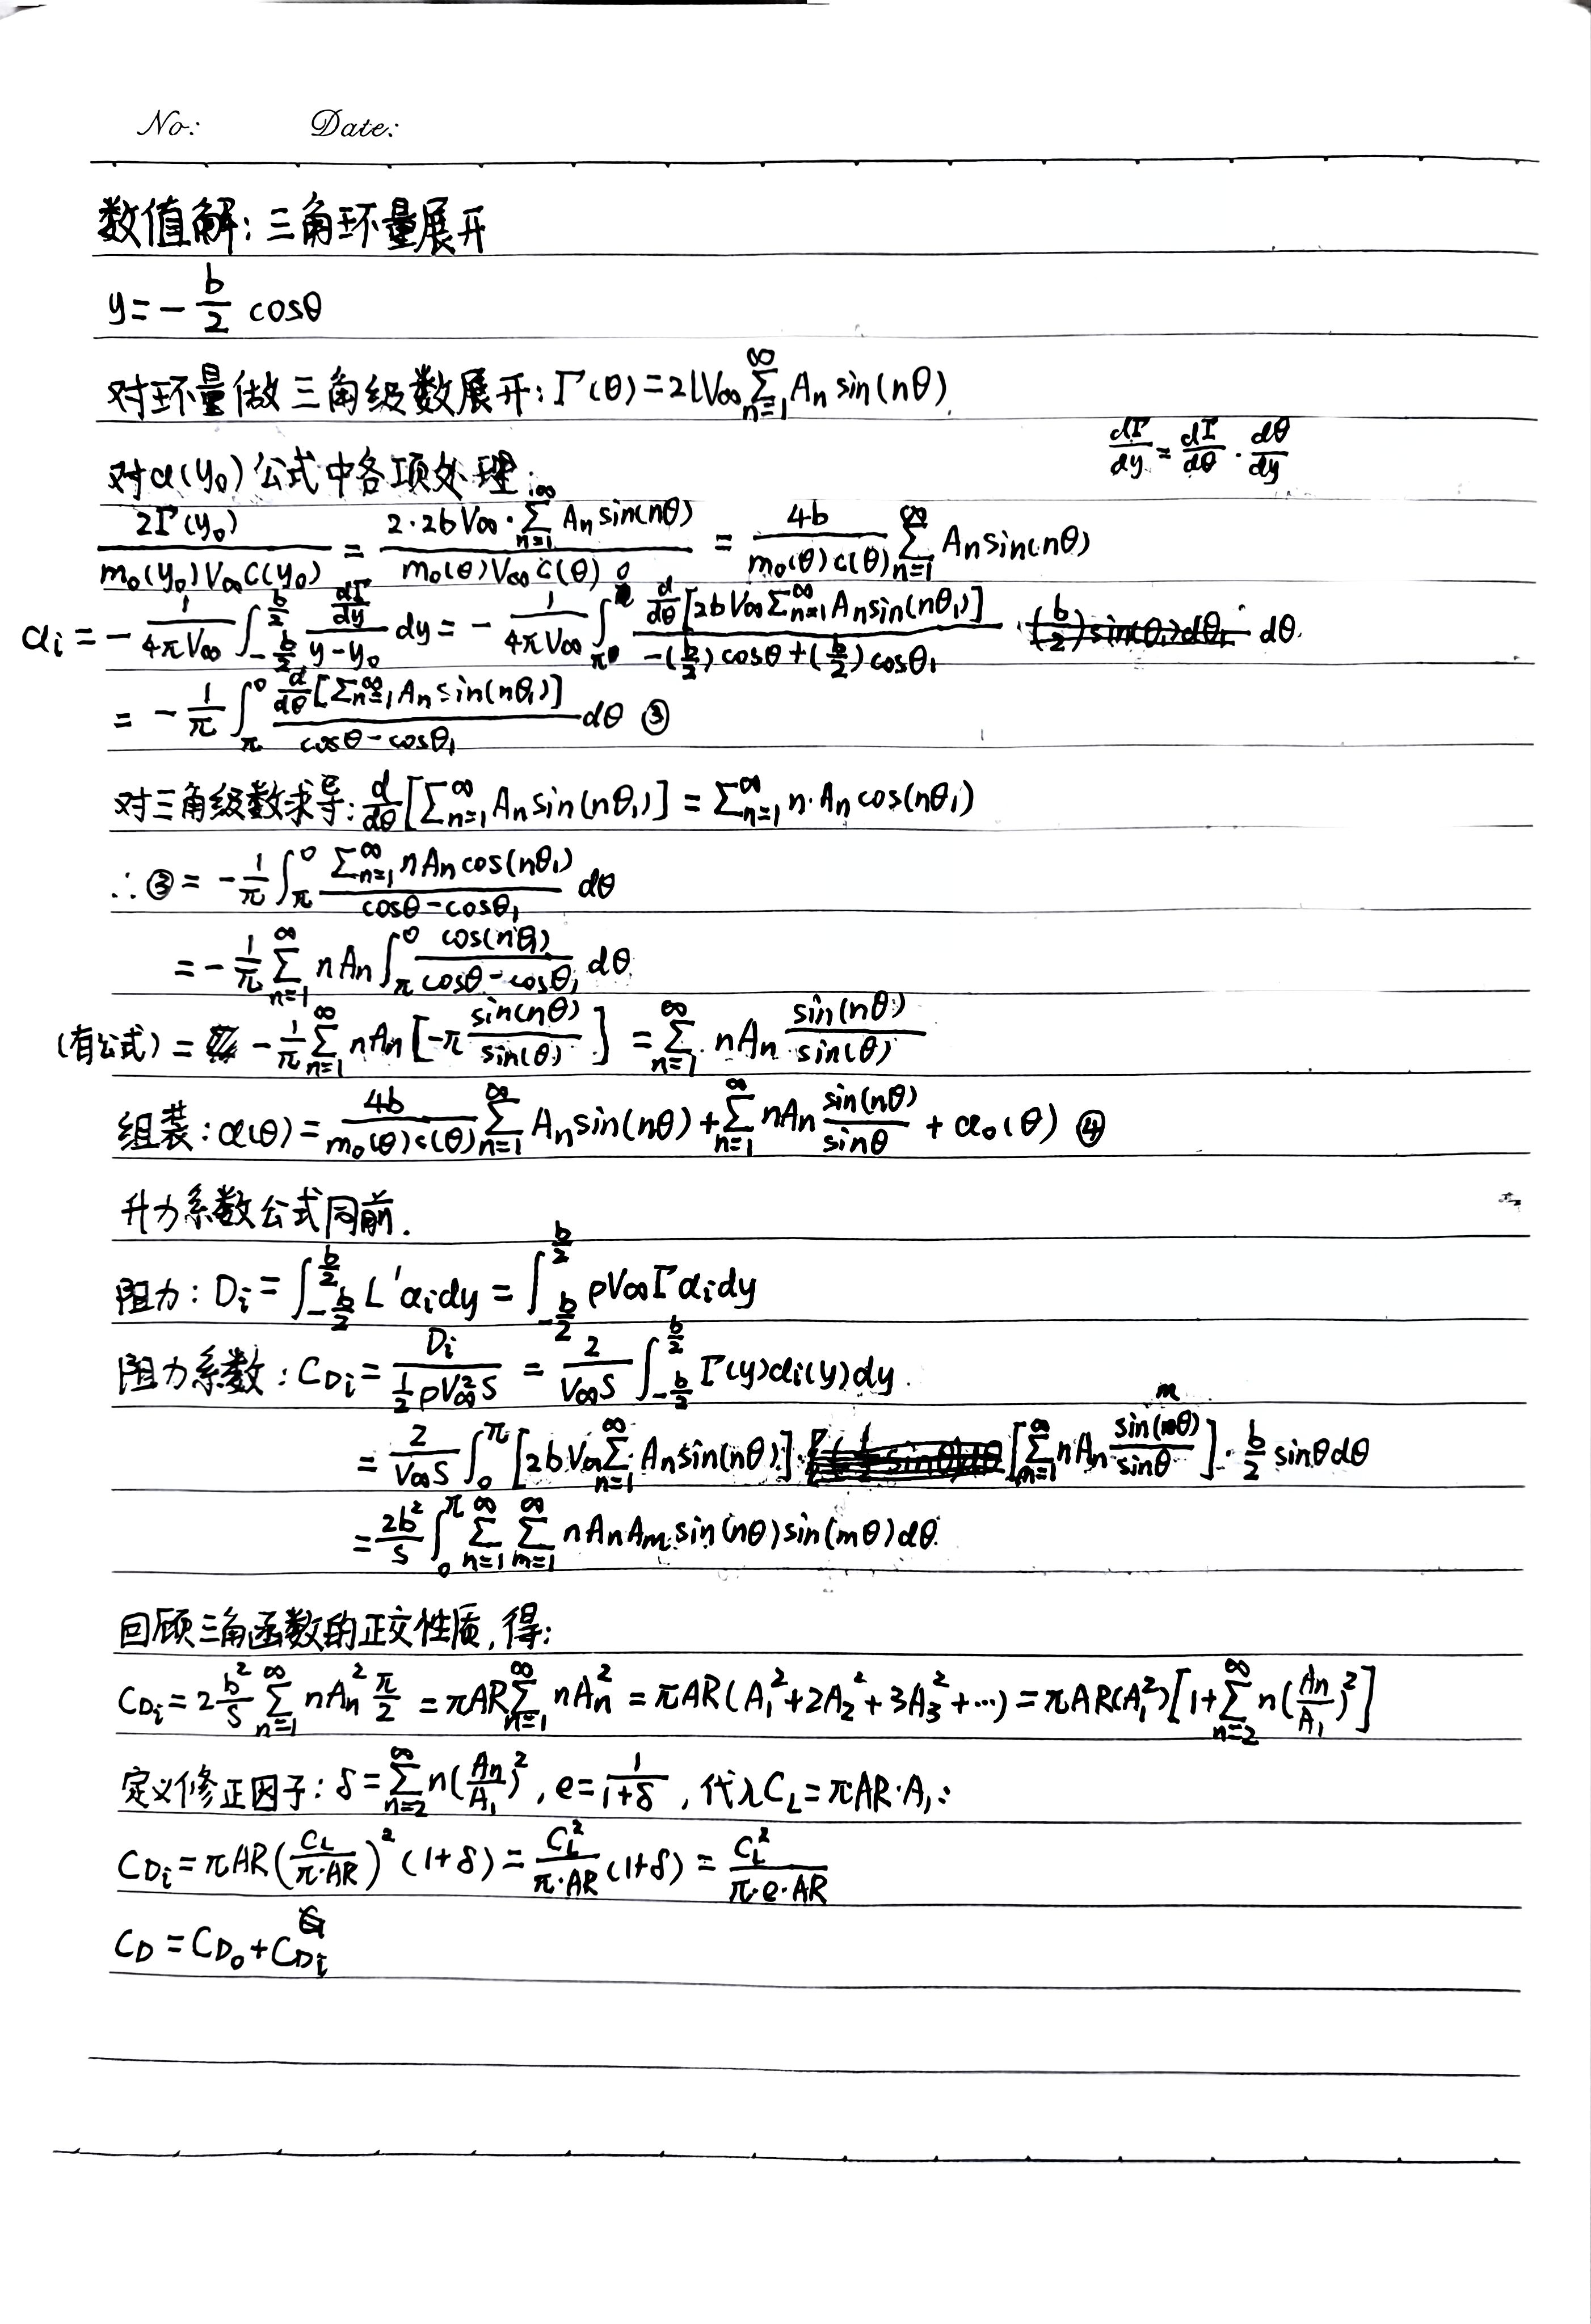 No: Date:
数值解: 三角环量展开
y = - b/2 cosθ
对环量做三角级数展开: Γ(θ) = 2lV∞ ∑_{n=1}^{∞} An sin(nθ)
dΓ/dy = dΓ/dθ · dθ/dy
对α(y₀)公式中各项处理:
2Γ(y₀)/(m₀(y₀)V∞C(y₀)) = (2·2bV∞·∑_{n=1}^{∞} An sin(nθ))/(m₀(θ)V∞C(θ)) = 4b/(m₀(θ)c(θ)) ∑_{n=1}^{∞} An sin(nθ)
αi = - 1/(4πV∞) ∫_{-b/2}^{b/2} (dΓ/dy)/(y-y₀) dy = - 1/(4πV∞) ∫_{π}^{0} (d/dθ[2bV∞∑_{n=1}^{∞} An sin(nθ₁)])/(-(b/2)cosθ+(b/2)cosθ₁) · dθ.
= - 1/π ∫_{π}^{0} (d/dθ[∑_{n=1}^{∞} An sin(nθ₁)])/(cosθ-cosθ₁) dθ ③
对三角级数求导: d/dθ[∑_{n=1}^{∞} An sin(nθ₁)] = ∑_{n=1}^{∞} n·An cos(nθ₁)
∴ ③ = - 1/π ∫_{π}^{0} (∑_{n=1}^{∞} nAn cos(nθ₁))/(cosθ-cosθ₁) dθ
= - 1/π ∑_{n=1}^{∞} nAn ∫_{π}^{0} cos(nθ₁)/(cosθ-cosθ₁) dθ
(有公式) = - 1/π ∑_{n=1}^{∞} nAn [-π sin(nθ)/sin(θ)] = ∑_{n=1}^{∞} nAn sin(nθ)/sin(θ)
组装: α(θ) = 4b/(m₀(θ)c(θ)) ∑_{n=1}^{∞} An sin(nθ) + ∑_{n=1}^{∞} nAn sin(nθ)/sinθ + α₀(θ) ④
升力系数公式同前.
阻力: Di = ∫_{-b/2}^{b/2} L'αi dy = ∫_{-b/2}^{b/2} ρV∞Γαi dy
阻力系数: C_Di = Di/(½ρV∞²S) = 2/(V∞S) ∫_{-b/2}^{b/2} Γ(y)αi(y)dy.
= 2/(V∞S) ∫_{0}^{π} [2bV∞∑_{n=1}^{∞} An sin(nθ)]·[∑_{m=1}^{∞} nAn sin(mθ)/sinθ]· b/2 sinθdθ
= 2b²/S ∫_{0}^{π} ∑_{n=1}^{∞} ∑_{m=1}^{∞} nAnAm sin(nθ)sin(mθ)dθ.
回顾三角函数的正交性质, 得:
C_Di = 2 b²/S ∑_{n=1}^{∞} nAn² π/2 = πAR∑_{n=1}^{∞} nAn² = πAR(A₁²+2A₂²+3A₃²+···) = πAR(A₁²)[1+∑_{n=2}^{∞} n(An/A₁)²]
定义修正因子: δ = ∑_{n=2}^{∞} n(An/A₁)², e = 1/(1+δ), 代入C_L = πAR·A₁:
C_Di = πAR(C_L/(π·AR))²(1+δ) = C_L²/(π·AR)(1+δ) = C_L²/(π·e·AR)
C_D = C_D₀ + C_Di